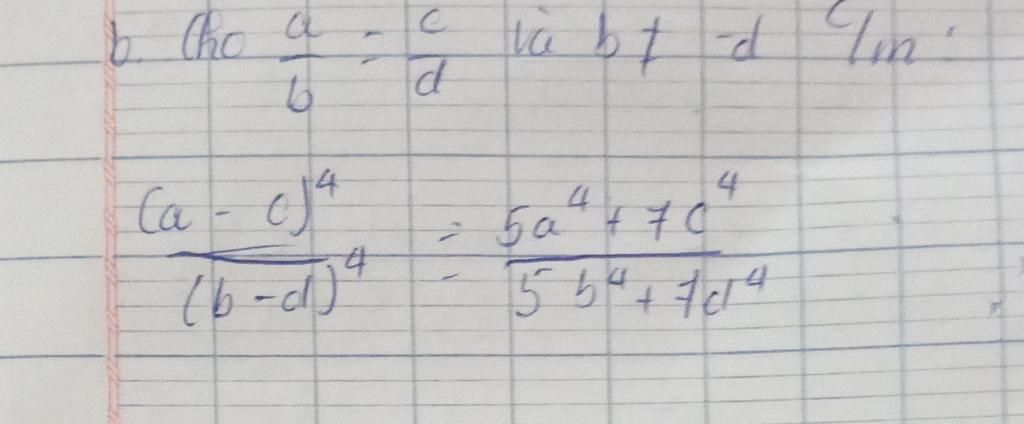 b. Cho a/b = c/d và b ≠ -d C/m:
(a - c)⁴/(b - d)⁴ = 5a⁴ + 7c⁴/5b⁴ + 7d⁴